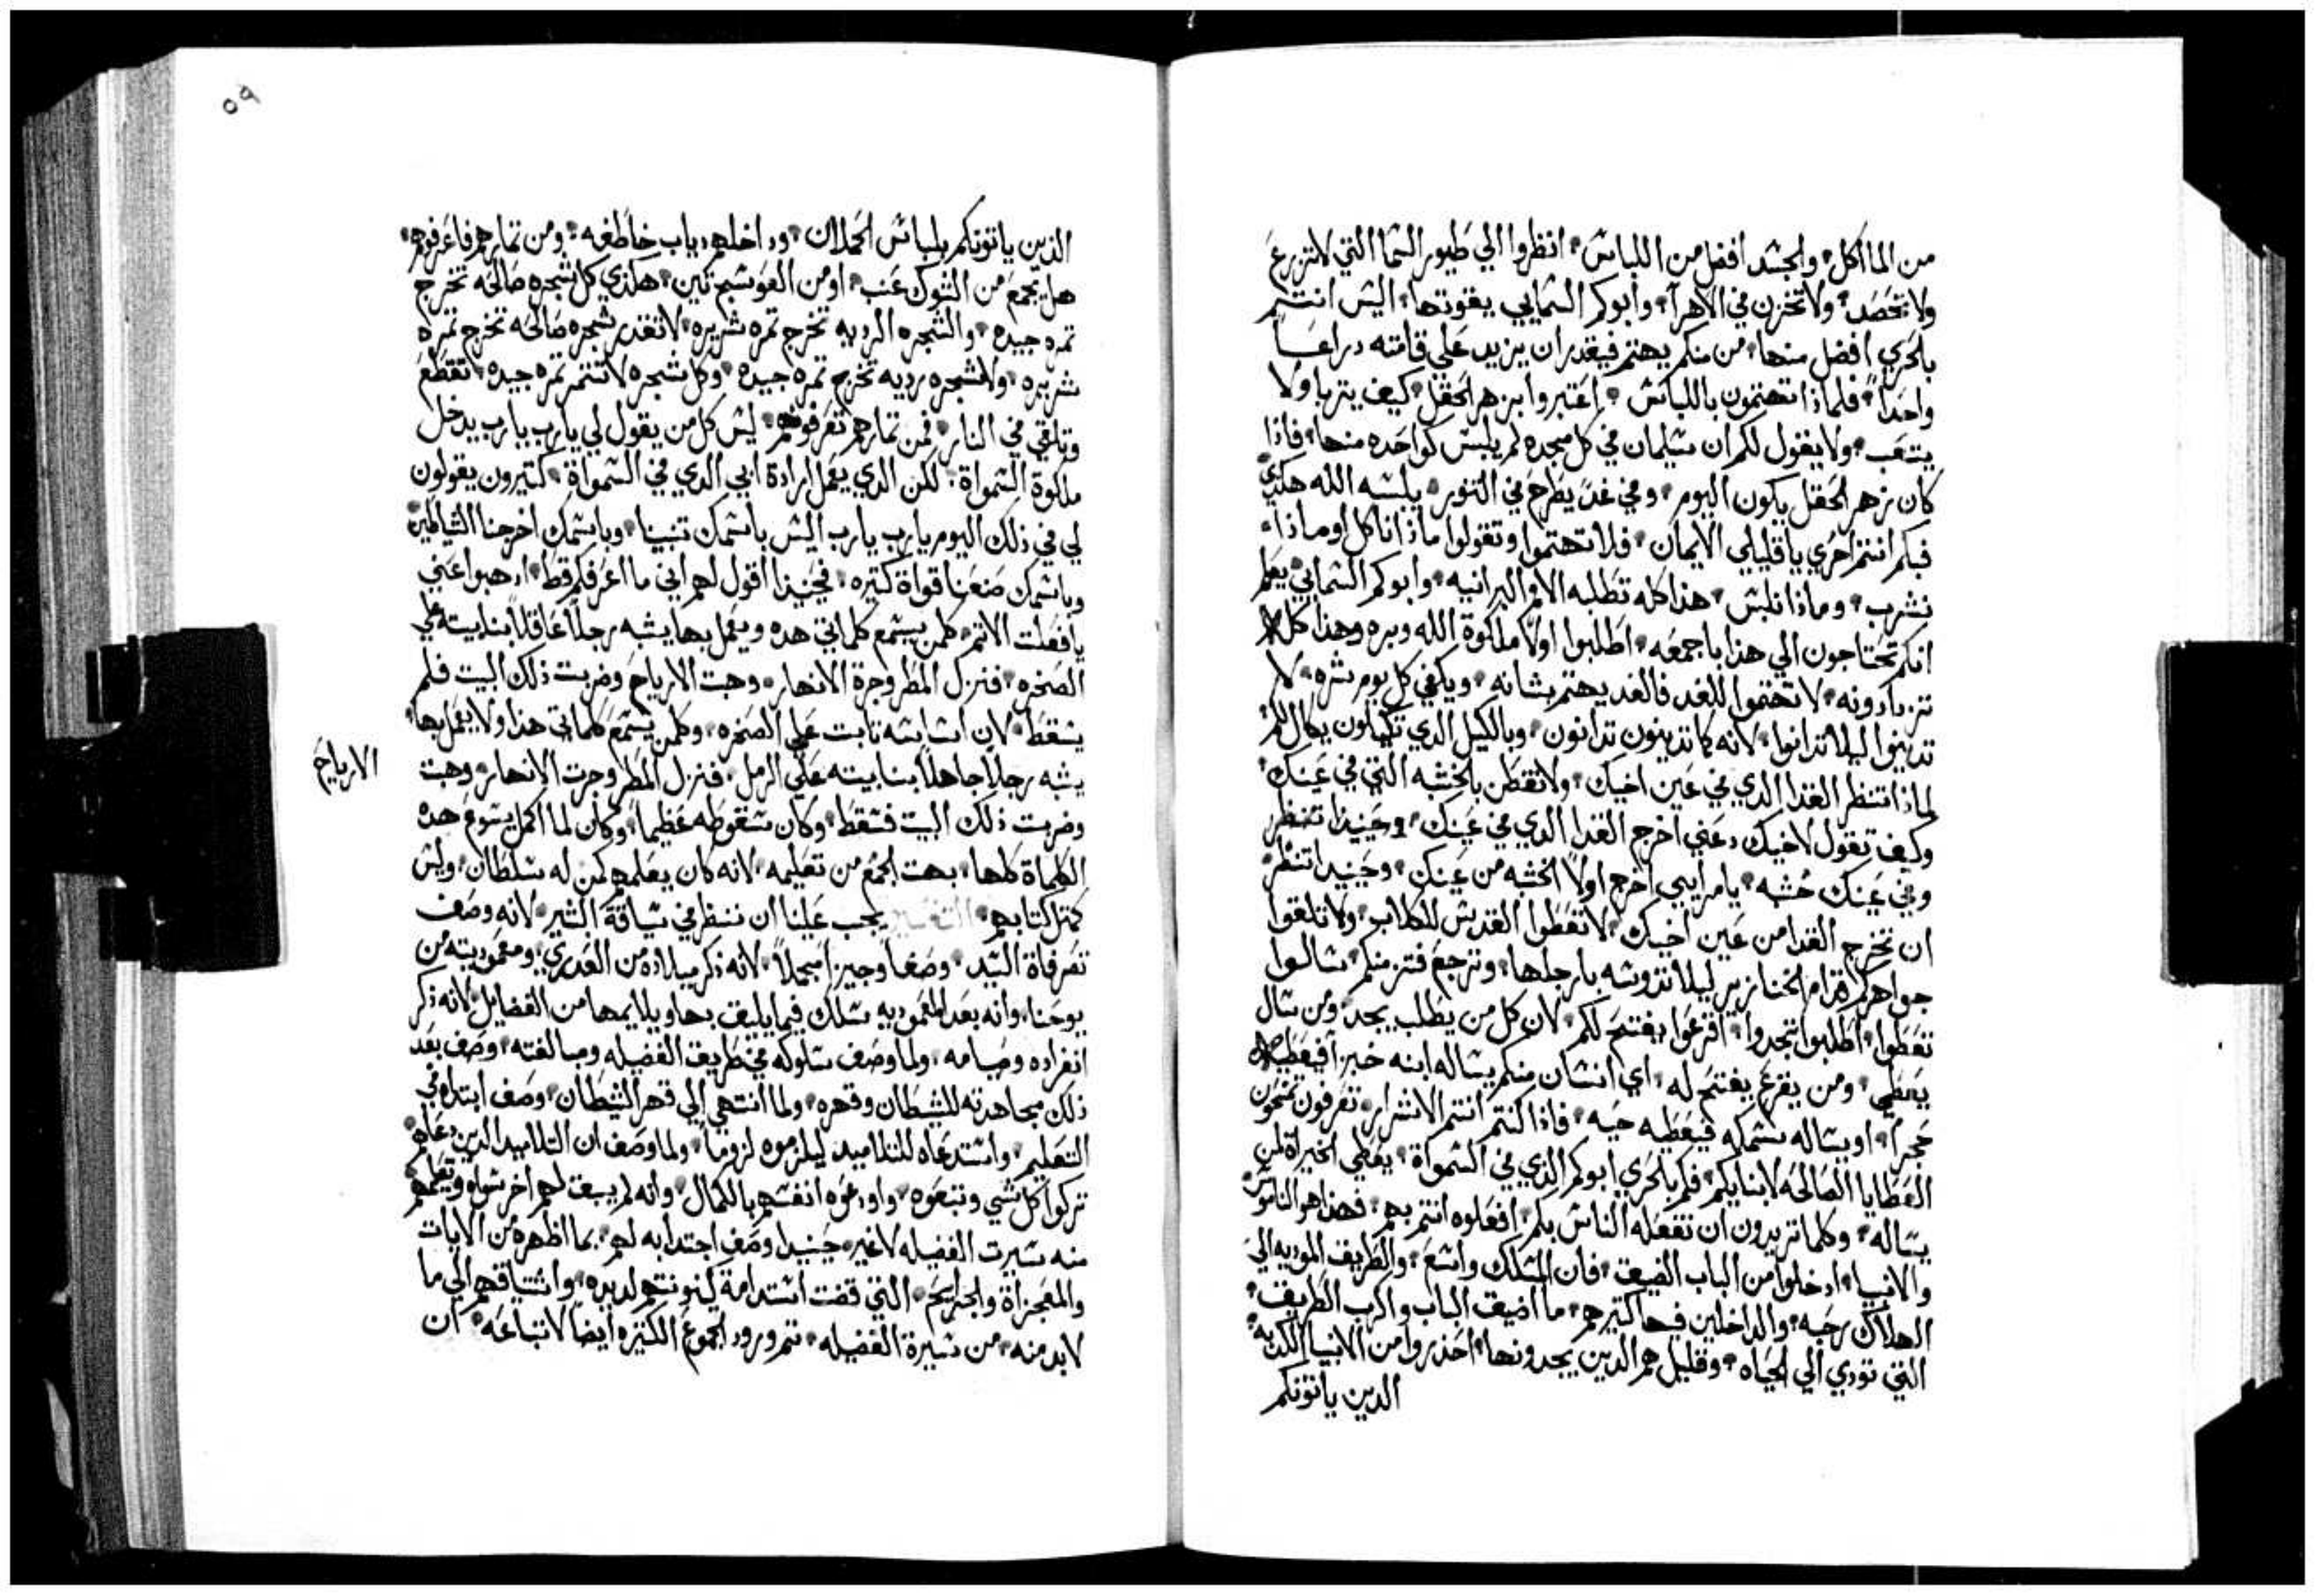 من الماأكل، والجسد افضل من اللباس، انظروا الي طيور السما التي لاتزرع
ولا تحصد، ولا تخزن في الاهرآ، وابوكم السمايي يقوتها، اليس انتم
بالحري افضل منها، من منكم يهتم فيقدر ان يزيد علي قامته دراعاً
واحداً، فلماذا تهتمون باللباس، اعتبروا بزهر الحقل، كيف يتربا ولا
يتعب، ولا يقول لكم ان سليمان في كل مجده لم يلبس كواحده منها، فاذا
كان زهر الحقل يكون اليوم، وفي غد يطرح في التنور، يلبسه الله هكدي
فبكم انتم احري ياقليلي الايمان، فلا تهتموا وتقولوا ماذا ناكل او ماذا
نشرب، وماذا نلبس، هذا كله تطلبه الامم البرانيه، وابوكم السمايي يعلم
انكم تحتاجون الي هذا باجمعه، اطلبوا اولاً ملكوة الله وبره وهذا كله
تزدادونه، لا تهتموا للغد فالغد يهتم بشانه، ويكفي كل يوم شره، لا
تدينوا ليلا تدانوا، لانه كما تدينون تدانون، وبالكيل الدي تكيلون يكال لكم
لماذا تنتظر القذا الدي في عين اخيك، ولا تفطن بالخشبه التي في عينك،
وكيف تقول لاخيك دعني اخرج القدا الدي في عينك، وحينيدا تنظر
وفي عينك خشبه، يامرايي اخرج اولاً الخشبه من عينك، وحينيدا تنظر
ان تخرج القدا من عين اخيك، لا تعطوا القدس للكلاب، ولا تلقوا
جواهركم قدام الخنازير ليلا تدوسه بارجلها، وترجع فتزمنكم، سالوا
تعطوا، اطلبوا تجدوا، اقرعوا يفتح لكم، لان كل من يطلب يجد، ومن سال
يعطي، ومن يقرع يفتح له، اي انسان منكم يساله ابنه خبزاً فيعطيه
حجراً، او يساله سمكه فيعطيه حيه، فاذا كنتم انتم الاشرار، تعرفون تمنحون
العطايا الصالحه لابنايكم، فكم بالحري ابوكم الدي في السمواة، يعطي الخيراة لمن
يساله، وكلما تريدون ان تفعله الناس بكم، افعلوه انتم بهم، فهذا هو الناموس
والانبيا، ادخلوا من الباب الضيق، فان المسلك واسع، والطريق الموديه الي
الهلاك رحبه، والداخلين فيها كتيرهم، ما اضيق الباب واكرب الطريق،
التي تودي الي الحياه، وقليل هم الدين يجدونها، احذروا من الانبيا الكدبه،
الدين ياتونكم
٥٩
الذين ياتونكم بلباس الحملان، وداخلهم دياب خاطفه، ومن تمارهم فاعرفوهم،
هل يجمع من الشوك عنب، اومن العوسج تين، هكدي كل شجره صالحه تخرج
تمره جيده، والشجره الرديه تخرج تمره شريره، لا تقدر شجره صالحه تخرج تمره
شريره، ولا شجره رديه تخرج تمره جيده، وكل شجره لا تتمر تمره جيده، تقطع
وتلقي في النار، فمن تمارهم تعرفوهم، ليس كل من يقول لي يارب يارب يدخل
ملكوة السمواة، لكن الدي يعمل ارادة ابي الدي في السمواة، كتيرون يقولون
لي في ذلك اليوم يارب يارب اليس باسمك تنبينا، وباسمك اخرجنا الشياطين
وباسمك صنعنا قواة كتيره، فحينيذا اقول لهم اني ما اعرفكم قط، ادهبوا عني
يا فعلت الاتم، كلمن يسمع كلماتي هده ويعمل بها يشبه رجلاً عاقلاً بنا بيته علي
الصخره، فنزل المطر وجرة الانهار، وهبت الارياح وضربت ذلك البيت فلم
يسقط، لان اساسه تابت علي الصخره، وكلمن يسمع كلماتي هذا ولا يعمل بها،
يشبه رجلاً جاهلاً بنا بيته علي الرمل، فنزل المطر وجرت الانهار، وهبت
الارياح
وضربت ذلك البيت فسقط، وكان سقوطه عظيماً، وكان لما اكمل يسوع هده
الكلماة كلها، بهت الجمع من تعليمه، لانه كان يعلمهم كمن له سلطان، وليس
كمتل كتابهم، التفسير يجب علينا ان ننظر في سياقة البشير، لانه وصف
تصرفاة السيد، وصفاً وجيزاً مجملاً، لانه ذكر ميلاده من العدري، ومعموديته من
يوحنا، وانه بعد المعموديه سلك فيما يليق بها ويلايمها من الفضايل، لانه ذكر
انفراده وصيامه، ولما وصف سلوكه في طريق الفضيله ومبالغته، وصف بعد
ذلك مجاهدته للشيطان وقهره، ولما انتهي الي قهر الشيطان، وصف ابتداه في
التعليم، واستدعاه للتلاميد ليلزموه لزوماً، ولما وصف ان التلاميد الدين دعاهم
تركوا كل شي وتبعوه، واودعوه انفسهم بالكمال، وانه لم يبق لهم اخر سواه وتعلمهم
منه سيرت الفضيله لا غير، حينيدا وصف اجتدابه لهم، بما اظهره من الايات
والمعجزاة والجرايح، التي قضت استدامة كينونتهم لديه، واشتياقهم الي ما
لابد منه، من سيرة الفضيله، تم ورود الجموع الكتيره ايضاً لاتباعه، ان